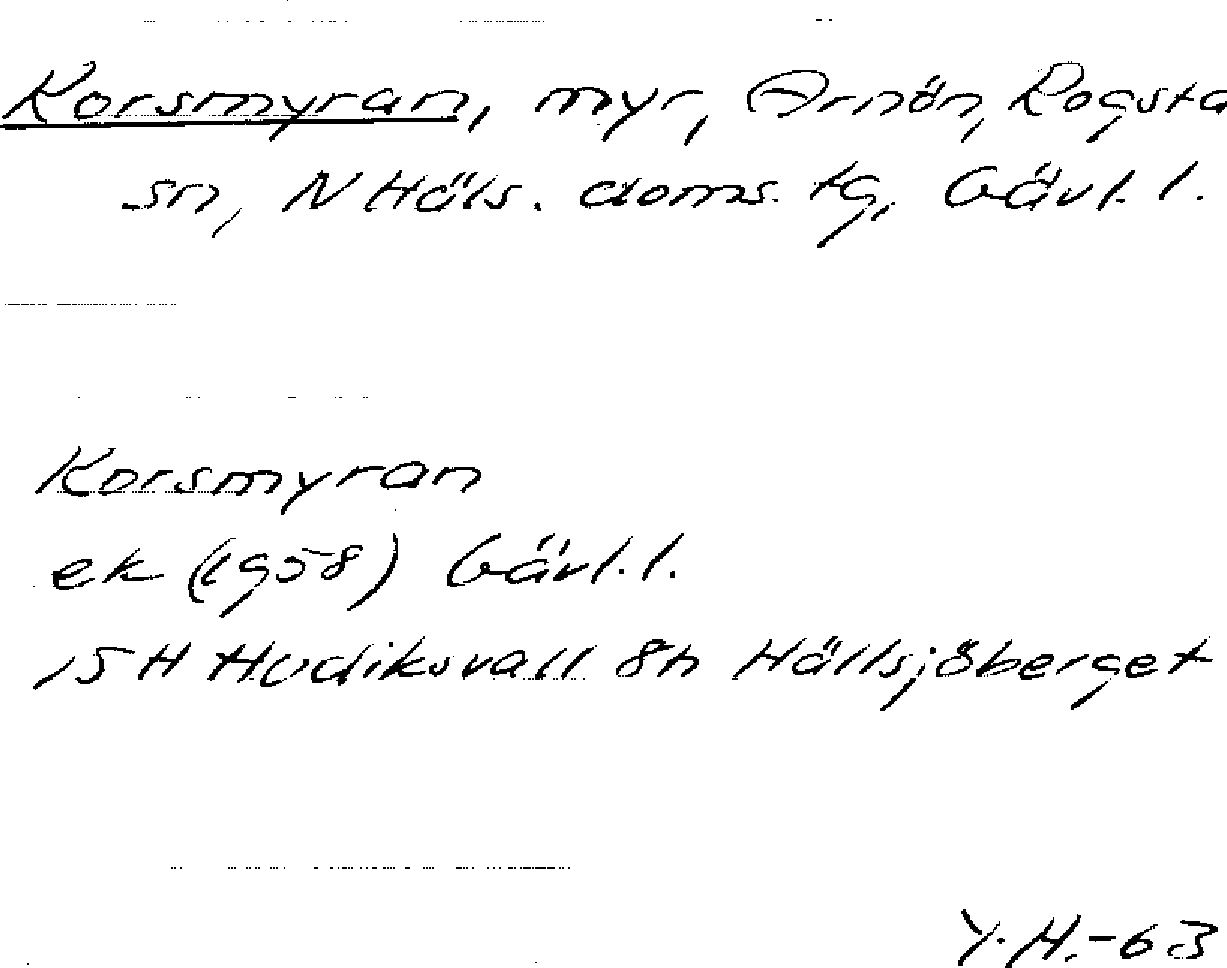 Korsmyran, myr, Arnön, Rogsta
sn, N Häls. doms. tg, Gävl. l.
Korsmyran
ek (1958) Gävl. l.
15 H Hudiksvall 8h Hällsjöberget
Y.H.-63